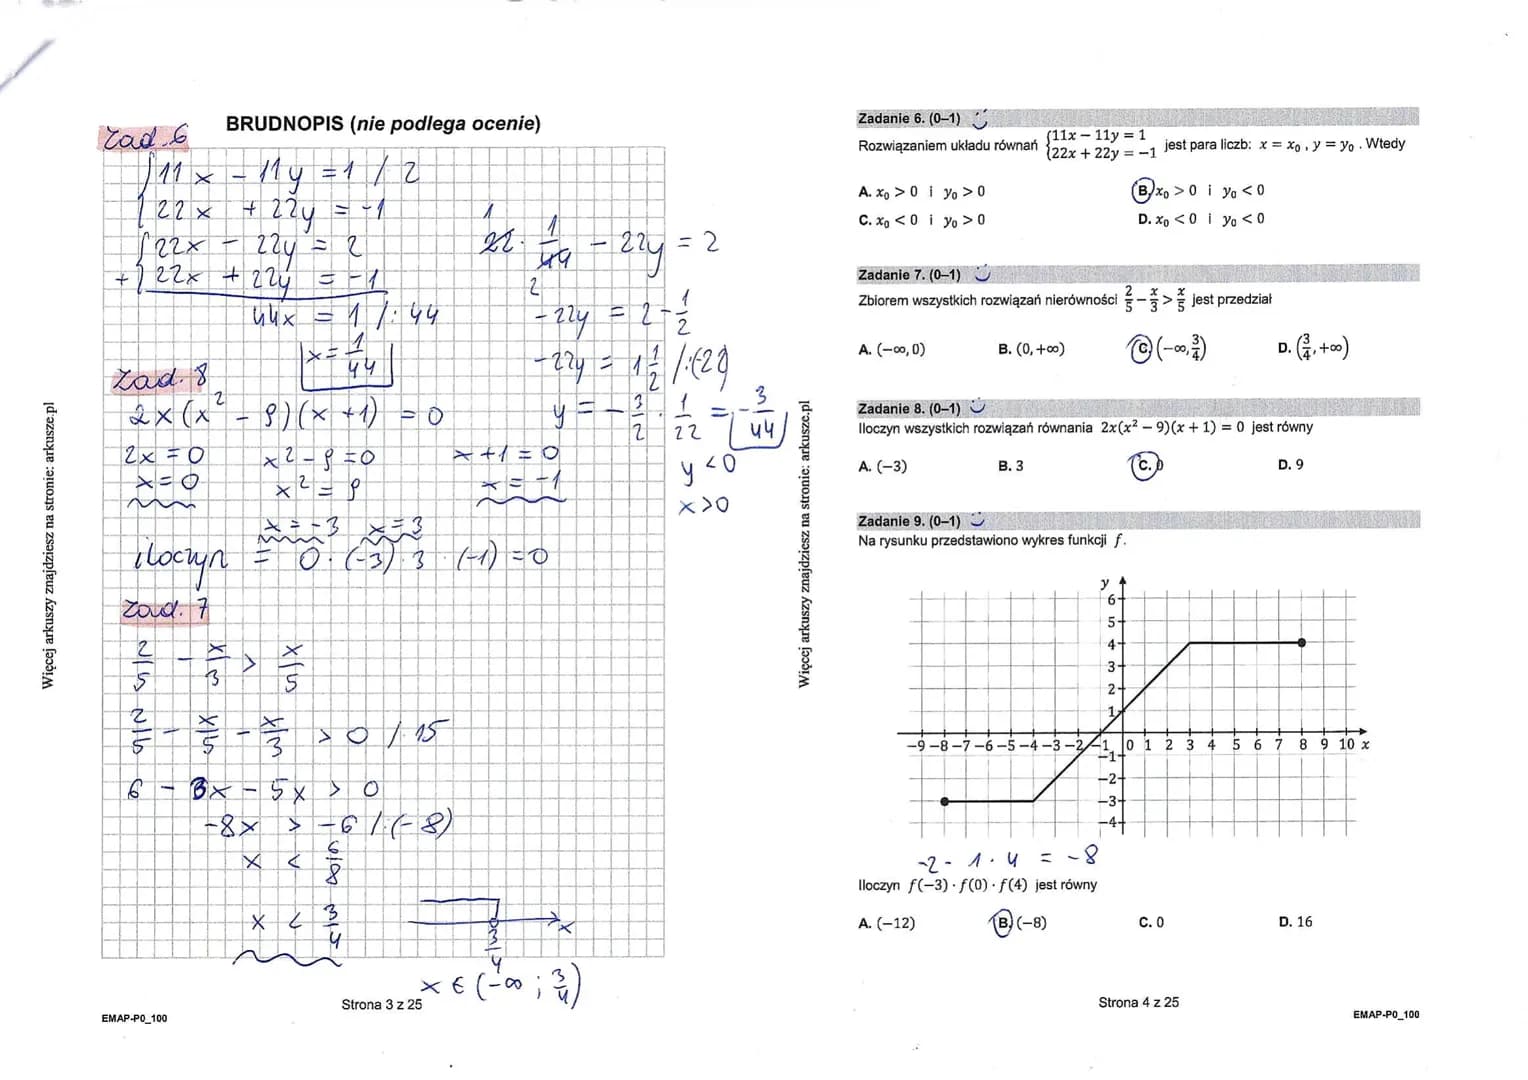 BRUDNOPIS (nie podlega ocenie)
Zad. 6
11x - 11y = 1 /·2
22x + 22y = -1
22x - 22y = 2
+ 22x + 22y = -1
44x = 1 /:44
x = 1/44
22 · 1/44 - 22y = 2
1 1
2
-22y = 2 - 1/2
-22y = 1 1/2 /:(-22)
y = -3/2 · 1/22 = -3/44
y < 0
x > 0
Zad. 8
2x(x² - 9)(x + 1) = 0
2x = 0 x² - 9 = 0 x + 1 = 0
x = 0 x² = 9 x = -1
x = -3 x = 3
iloczyn = 0 · (-3) · 3 · (-1) = 0
Zad. 7
2/5 - x/3 > x/5
2/5 - x/5 - x/3 > 0 /·15
6 - 3x - 5x > 0
-8x > -6 /:(-8)
x < 6/8
x < 3/4
3/4 x
x ∈ (-∞ ; 3/4)
Strona 3 z 25
EMAP-P0_100
Więcej arkuszy znajdziesz na stronie: arkusze.pl
Więcej arkuszy znajdziesz na stronie: arkusze.pl
Zadanie 6. (0–1)
Rozwiązaniem układu równań {11x − 11y = 1
22x + 22y = −1 jest para liczb: x = x₀ , y = y₀ . Wtedy
A. x₀ > 0 i y₀ > 0 B. x₀ > 0 i y₀ < 0
C. x₀ < 0 i y₀ > 0 D. x₀ < 0 i y₀ < 0
Zadanie 7. (0–1)
Zbiorem wszystkich rozwiązań nierówności 2/5 − x/3 > x/5 jest przedział
A. (−∞, 0) B. (0, +∞) C. (−∞, 3/4) D. (3/4, +∞)
Zadanie 8. (0–1)
Iloczyn wszystkich rozwiązań równania 2x(x² − 9)(x + 1) = 0 jest równy
A. (−3) B. 3 C. 0 D. 9
Zadanie 9. (0–1)
Na rysunku przedstawiono wykres funkcji f.
y
6
5
4
3
2
1
−9 −8 −7 −6 −5 −4 −3 −2 −1 0 1 2 3 4 5 6 7 8 9 10 x
−1
−2
−3
−4
-2 · 1 · 4 = -8
Iloczyn f(−3) · f(0) · f(4) jest równy
A. (−12) B. (−8) C. 0 D. 16
Strona 4 z 25
EMAP-P0_100